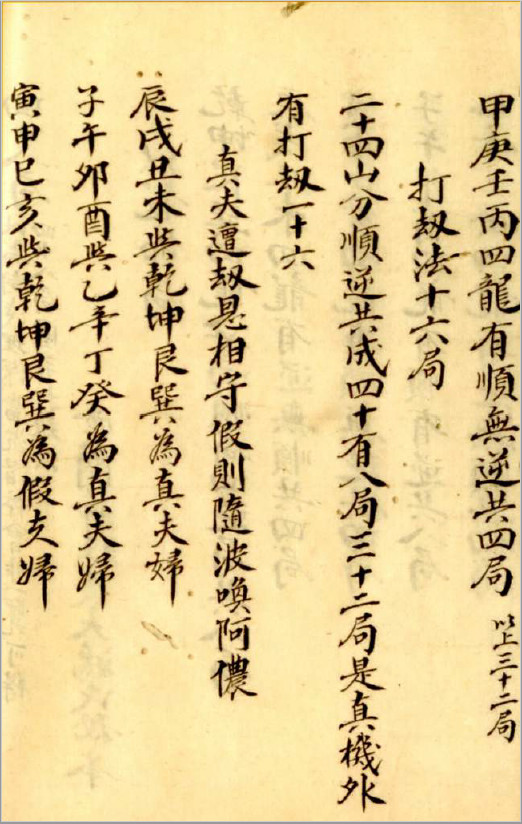 甲庚壬丙四龍有順無逆共四局 以上三十二局
打刼法十六局
二十四山分順逆共成四十有八局三十二局是真機外
有打刼一十六
真夫遭刼恳相守假則隨波喚阿儂
辰戌丑未與乾坤艮巽為真夫婦
子午卯酉與乙辛丁癸為真夫婦
寅申巳亥與乾坤艮巽為假夫婦